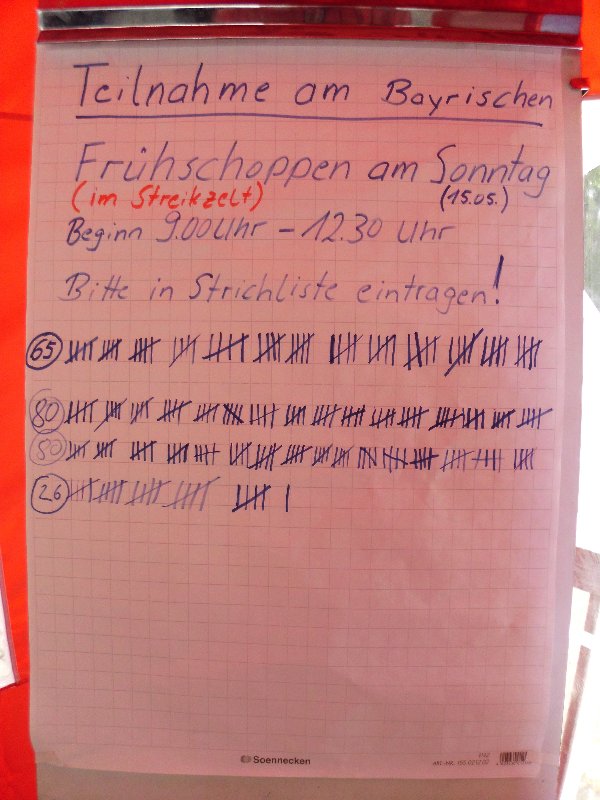 Teilnahme am Bayrischen
Frühschoppen am Sonntag
(im Streikzelt) (15.05.)
Beginn 9.00 Uhr - 12.30 Uhr
Bitte in Strichliste eintragen!
65
80
80
26
Soennecken